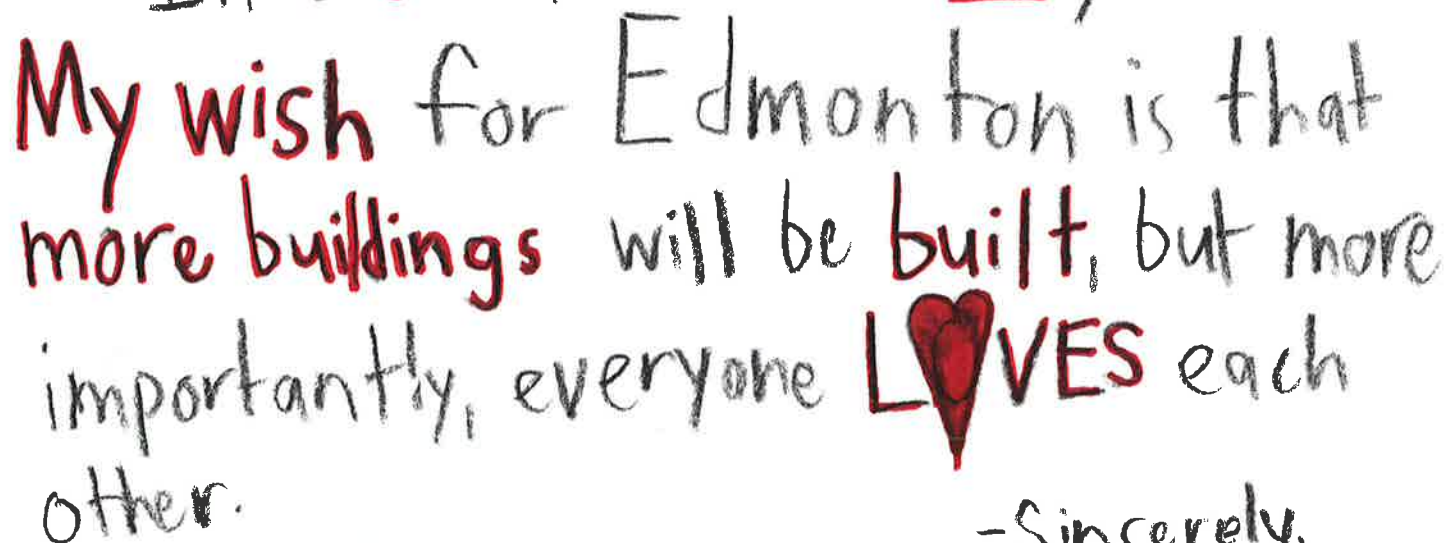 My wish for Edmonton is that
more buildings will be built, but more
importantly, everyone LOVES each
other.
-Sincerely,